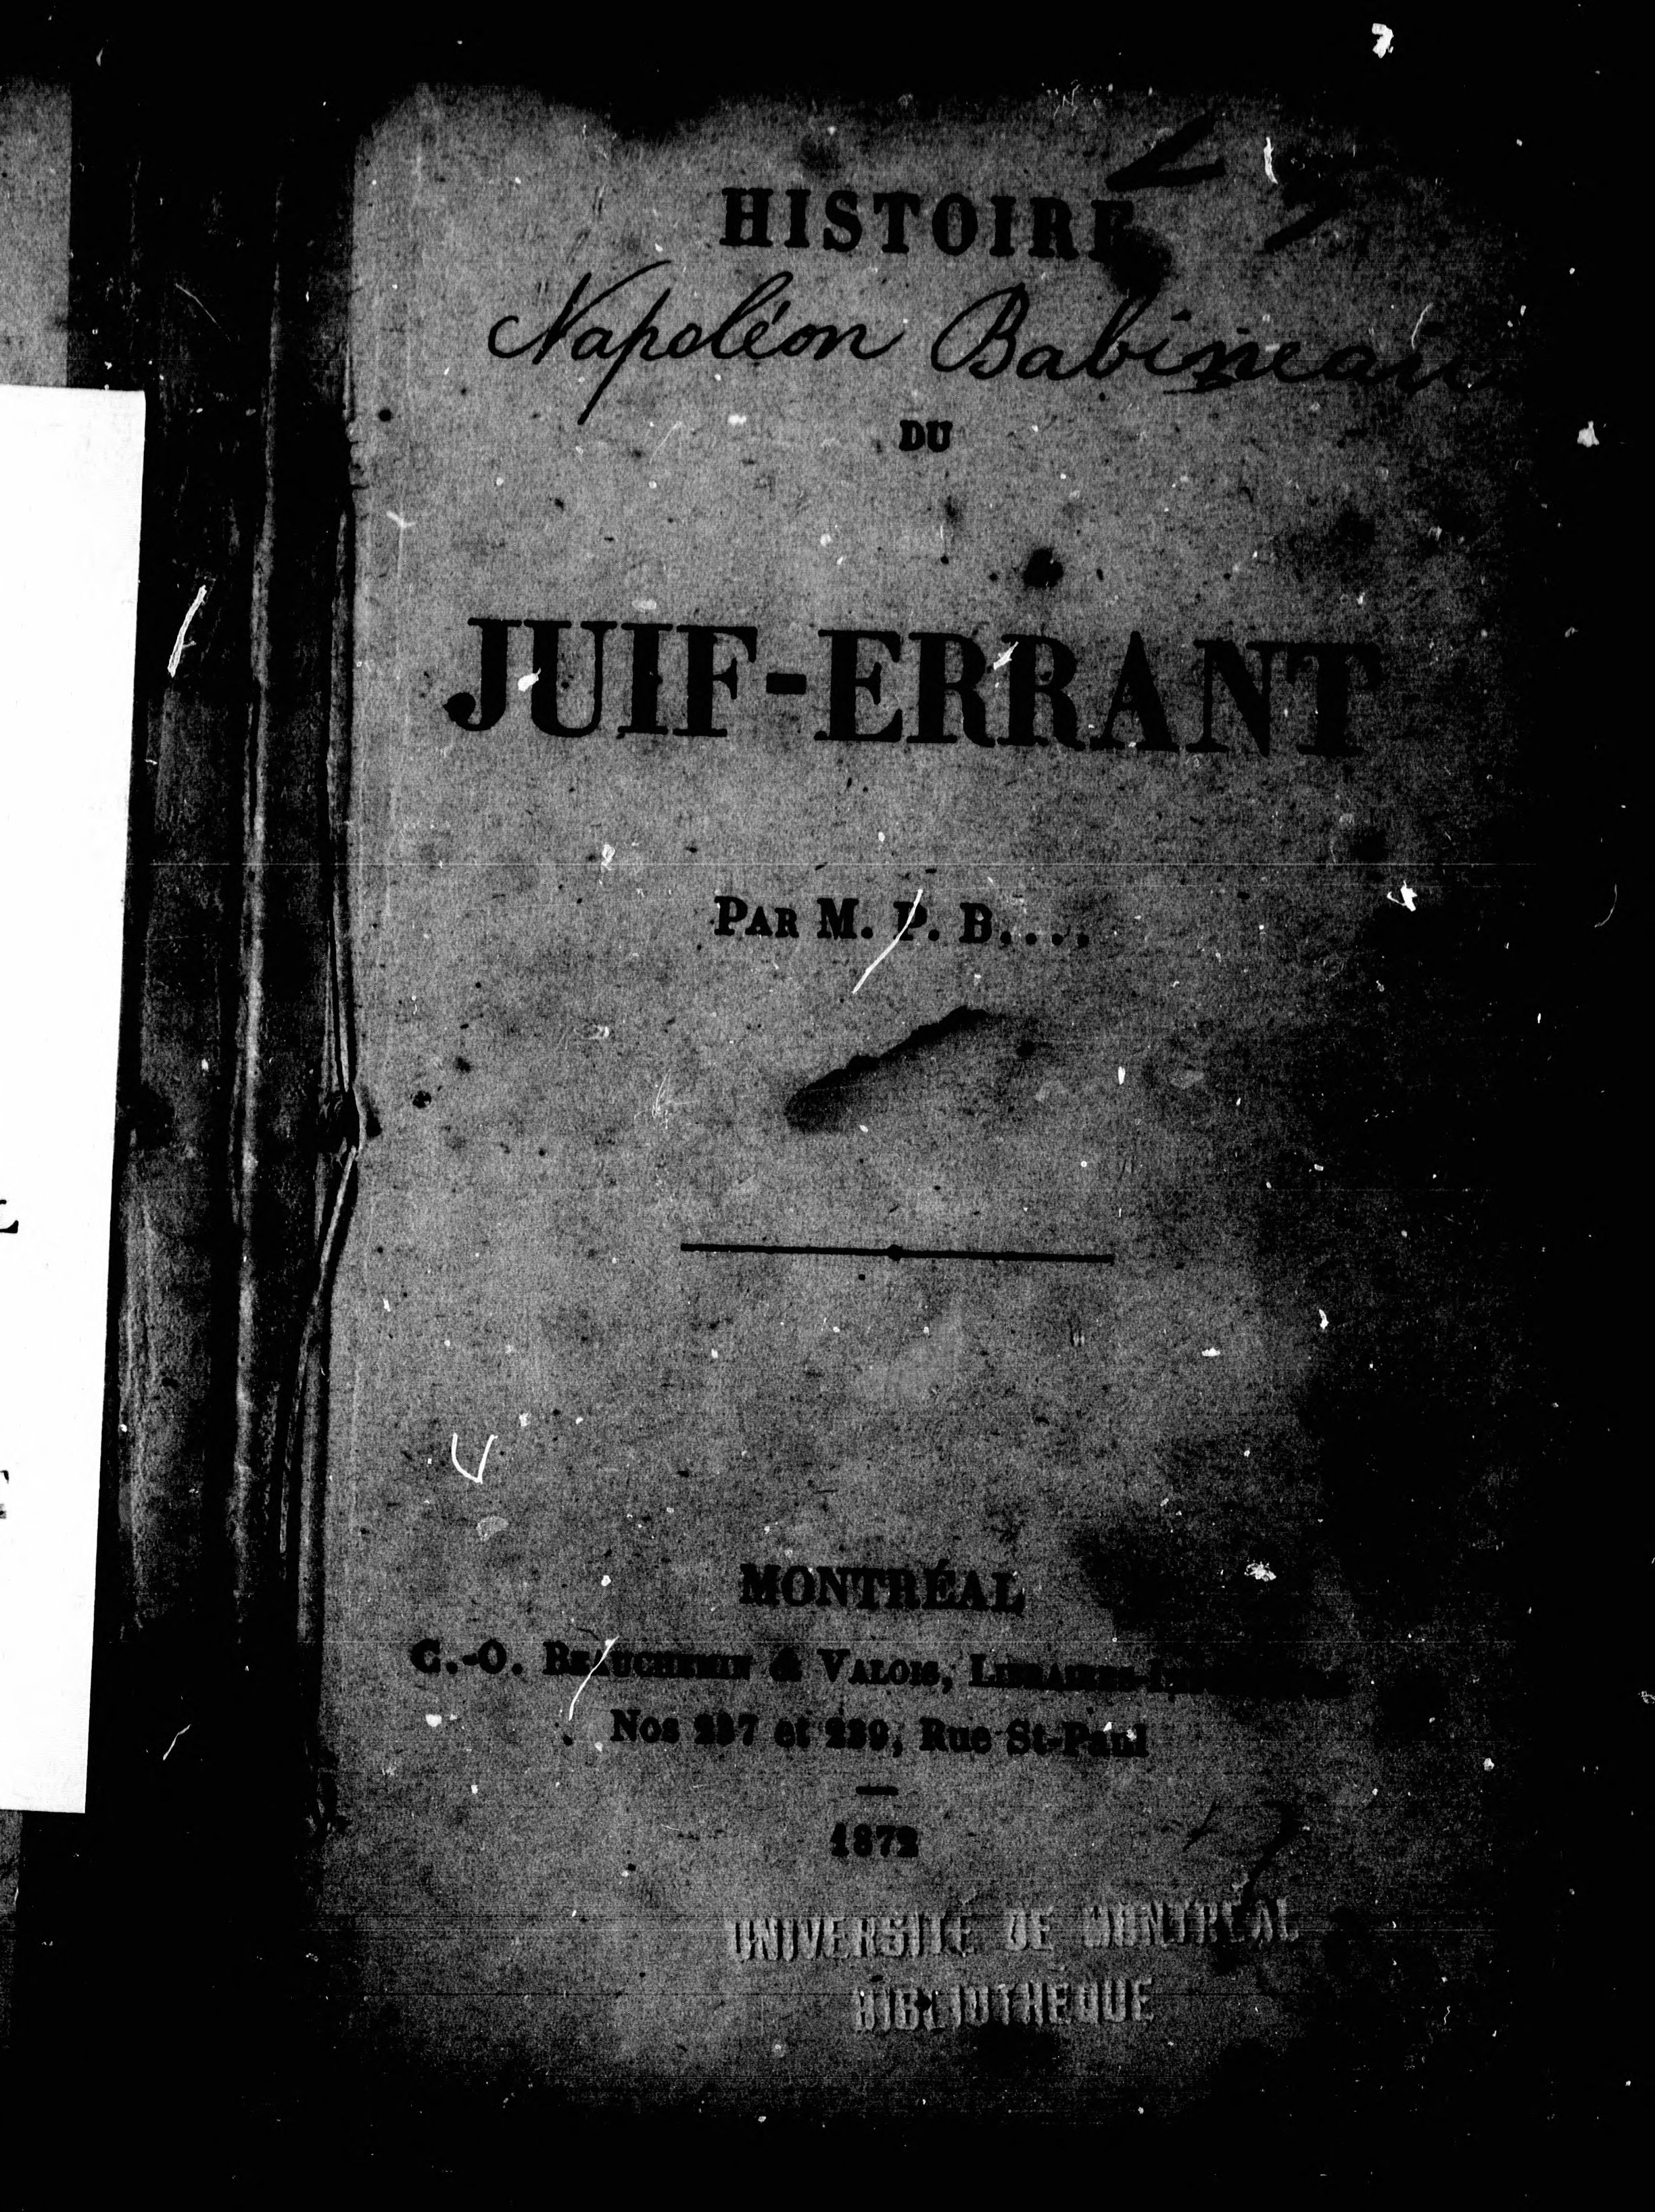 HISTOIRE
Napoléon Babineau
DU
JUIF-ERRANT
PAR M. P. B....
MONTRÉAL
C.-O. BEAUCHEMIN & VALOIS, LIBRAIRES-IMPRIMEURS
Nos 237 et 239, Rue St-Paul
1872
UNIVERSITÉ DE MONTRÉAL
BIBLIOTHÈQUE